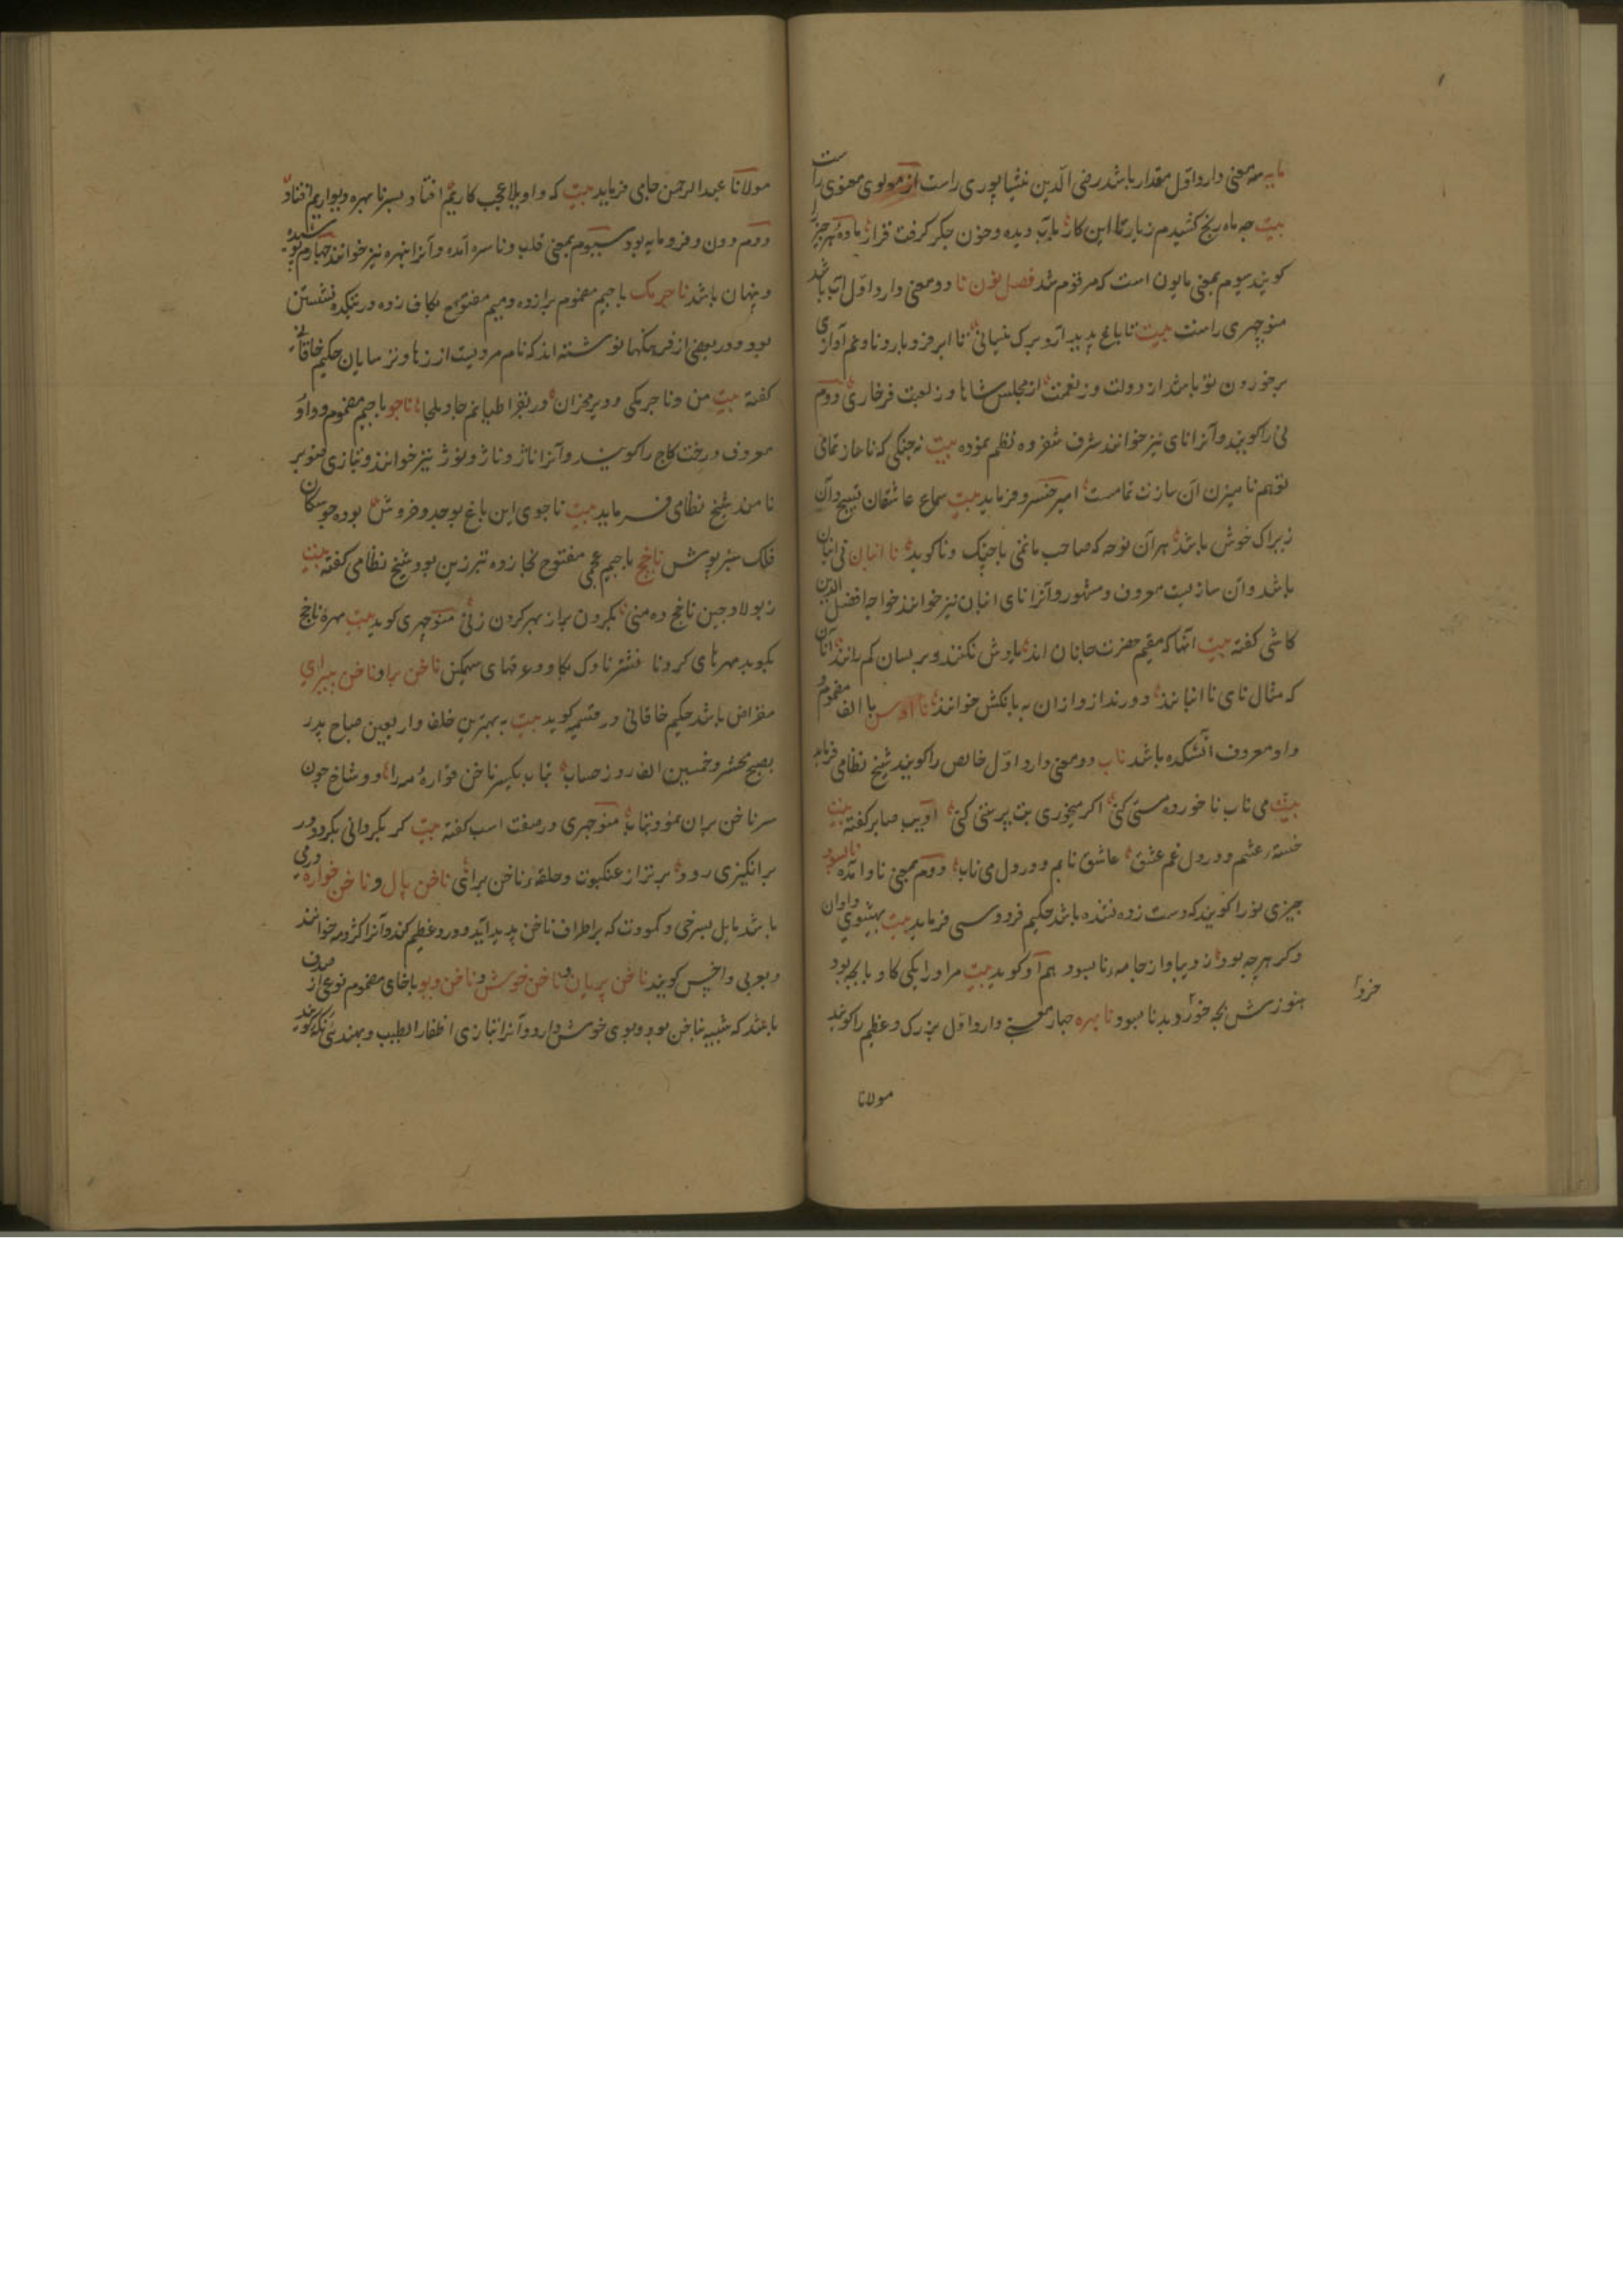 مایه سه معنی دارد اوّل مقدار باشد رضی الدین نیشاپوری راست از مولوی معنوی راست
بیت چه مایه رنج کشیدم ز یار تا این کار بآب دیده و خون جگر گرفت قرار مادهٔ هر چیز را
کویند سیوم بمعنی مایون است که مرقوم شد فصل نون نا دو معنی دارد اوّل آب باشد
منوچهری راست بیت تا باغ پدید آرد برک تا ابر فرو بارد نا و نم آذاری
برخوردن تو باشد از دولت و ز نعمت از مجلس شاها و ز لعبت فرخاری دوم
نی را کویند و آنرا نای نیز خوانند شرف شفروه نظم نموده بیت نه چنکی که ناساز نمائی
تو هم نا میزن آن سازت تمامست امیر خسرو فرماید بیت سماع عاشقان
زیراک خوش باشد هر آن نوحه که صاحب ماتمی با چنک و نا کوید نا انبان نی انبان
باشد و آن سازیست معروف و مشهور و آنرا نای انبان نیز خوانند خواجه افضل الدین
کاشی کفته بیت آنها که مقیم حضرت جانان اند یادش نکنند و بر بسان کم رانند آنان
که مثال نای نا انبانند دورند از و ازان به بانکش خوانند نا اوس با الف مضموم و
واو معروف آتشکده باشد ناب دو معنی دارد اوّل خالص را کویند شیخ نظامی فرماید
بیت می ناب نا خورده مستی کنی اکر میخوری بت پرستی کنی ادیب صابر کفته بیت
خستهٔ عشم و در دل غم عشق عاشق نابم و در دل می ناب دوم بمعنی ناو آمده نابسود
چیزی نو را کویند که دست زده نشده باشد حکیم فردوسی فرماید بیت
دکر هرچه بود از دیبا و از جامهٔ نابسود هم او کوید بیت مر او را یکی کاو با بچه بود
هنوزش بچه خورد بد نابسود نابهره چهار معنی دارد اوّل بزرک و عظیم را کویند
خرد
مولانا
مولانا عبد الرحمن جامی فرماید بیت که واویلا عجب کاریم افتاد بسر نابهره دیواریم افتاد
دوم دون و فرومایه بود سیوم بمعنی قلب و ناسره آمده و آنرا نبهره نیز خوانند چهارم پوشیده
و پنهان باشد ناجرمک با جیم مضموم برا زده و میم مفتوح بکاف زده در بتکده نشستن
بود و در بعضی از فرهنکها نوشته اند که نام مردیست از زهاد ترسایان حکیم خاقانی
کفته بیت من و ناجرمکی و دیر مخزان در بقراطیانم جا و ملجا ناجو با جیم مضموم و واو
معروف درخت کاج را کویند و آنرا ناژ و ناژو و نوژ نیز خوانند و بتازی صنوبر
نامند شیخ نظامی فرماید بیت ناجوی این باغ بوجد و خروش بوده چو سکان
فلک سبز پوش ناجخ با جیم عجمی مفتوح بخا زده تبرزین بود شیخ نظامی کفته بیت
ز پولاد چین ناجخ ده منی بکردن براز بهر کردن زنی منوچهری کوید بیت مهرهٔ ناجخ
بکوبد مهرهای کردنا نشتر ناوک بکاود عرقهای سهمکین ناخن برا و ناخن پیرای
مقراض باشد حکیم خاقانی در قسمیه کوید بیت به بهترین خلف و اربعین صباح پدر
بصبح محشر و خمسین الف روز حساب بتاب یکسر ناخن قوارهٔ مه را دو شاخ چون
سر ناخن بران نمود بتاب منوچهری در صفت اسب کفته بیت کر بکردانی بکردد ور
برانکیزی رود بر تراز عنکبوت و حلقهٔ ناخن برای ناخن پال و ناخن خواره ورمی
باشد مایل بسرخی و کمودت که بر اطراف ناخن پدید آید و درد عظیم کند و آنرا کژدمه خوانند
و بعربی داخس کویند ناخن پریان و ناخن خوش و ناخن دیو با خای مضموم نوعی از صدف
باشد که شبیه بناخن بود و بوی خوش دارد و آنرا بتازی اظفار الطیب و بهندی نکه کویند